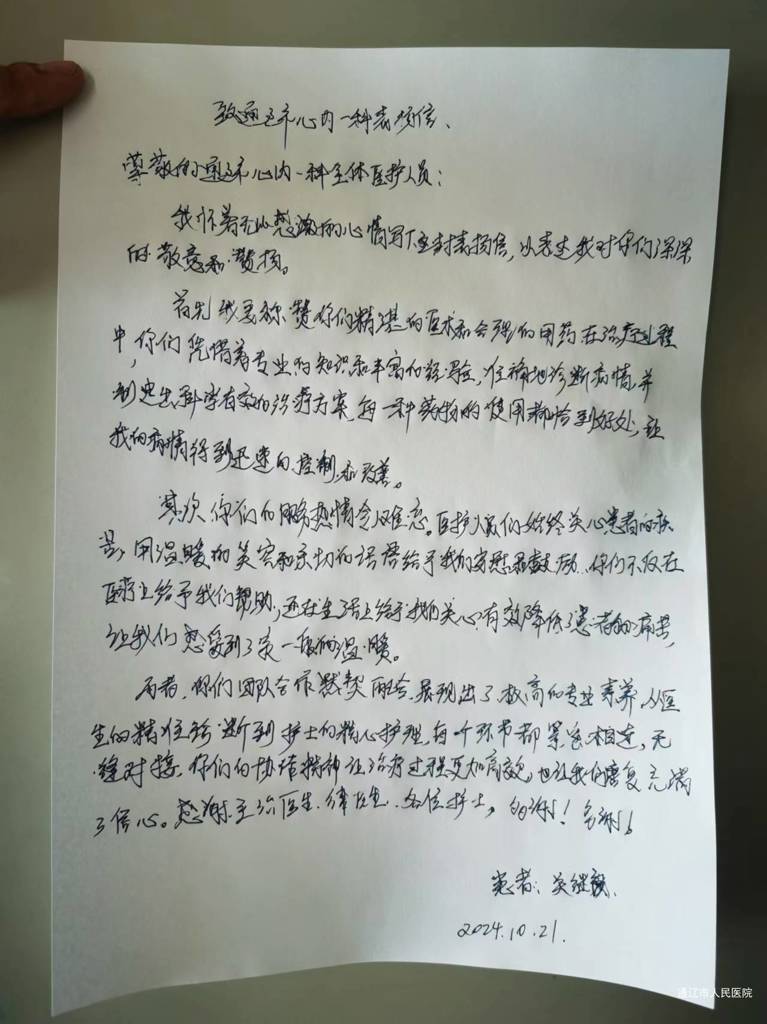 致通辽市心内一科表扬信、
尊敬的通辽市心内一科全体医护人员：
我怀着无比感激的心情写下这封表扬信，以表达我对你们深深
的敬意和赞扬。
首先我要称赞你们精湛的医术和合理的用药在治疗过程
中，你们凭借着专业的知识和丰富的经验，准确地诊断病情，并
制定出科学有效的治疗方案，每一种药物的使用都恰到好处，让
我的病情得到迅速的控制和改善。
其次你们的服务热情令人难忘。医护人员们始终关心患者的疾
苦，用温暖的笑容和亲切的话语给予我们安慰和鼓励，你们不仅在
医疗上给予我们帮助，还在生活上给予我们关心，有效降低了患者的痛苦，
让我们感受到了家一般的温暖。
再者，你们团队合作默契配合，展现出了极高的专业素养，从医
生的精准诊断到护士的精心护理，每个环节都紧密相连，无
缝对接。你们的协作精神让治疗过程更加高效，也让我们康复充满
了信心。感谢主治医生、医生、各位护士，多谢！多谢！
患者：吴继
2024.10.21.
通辽市人民医院